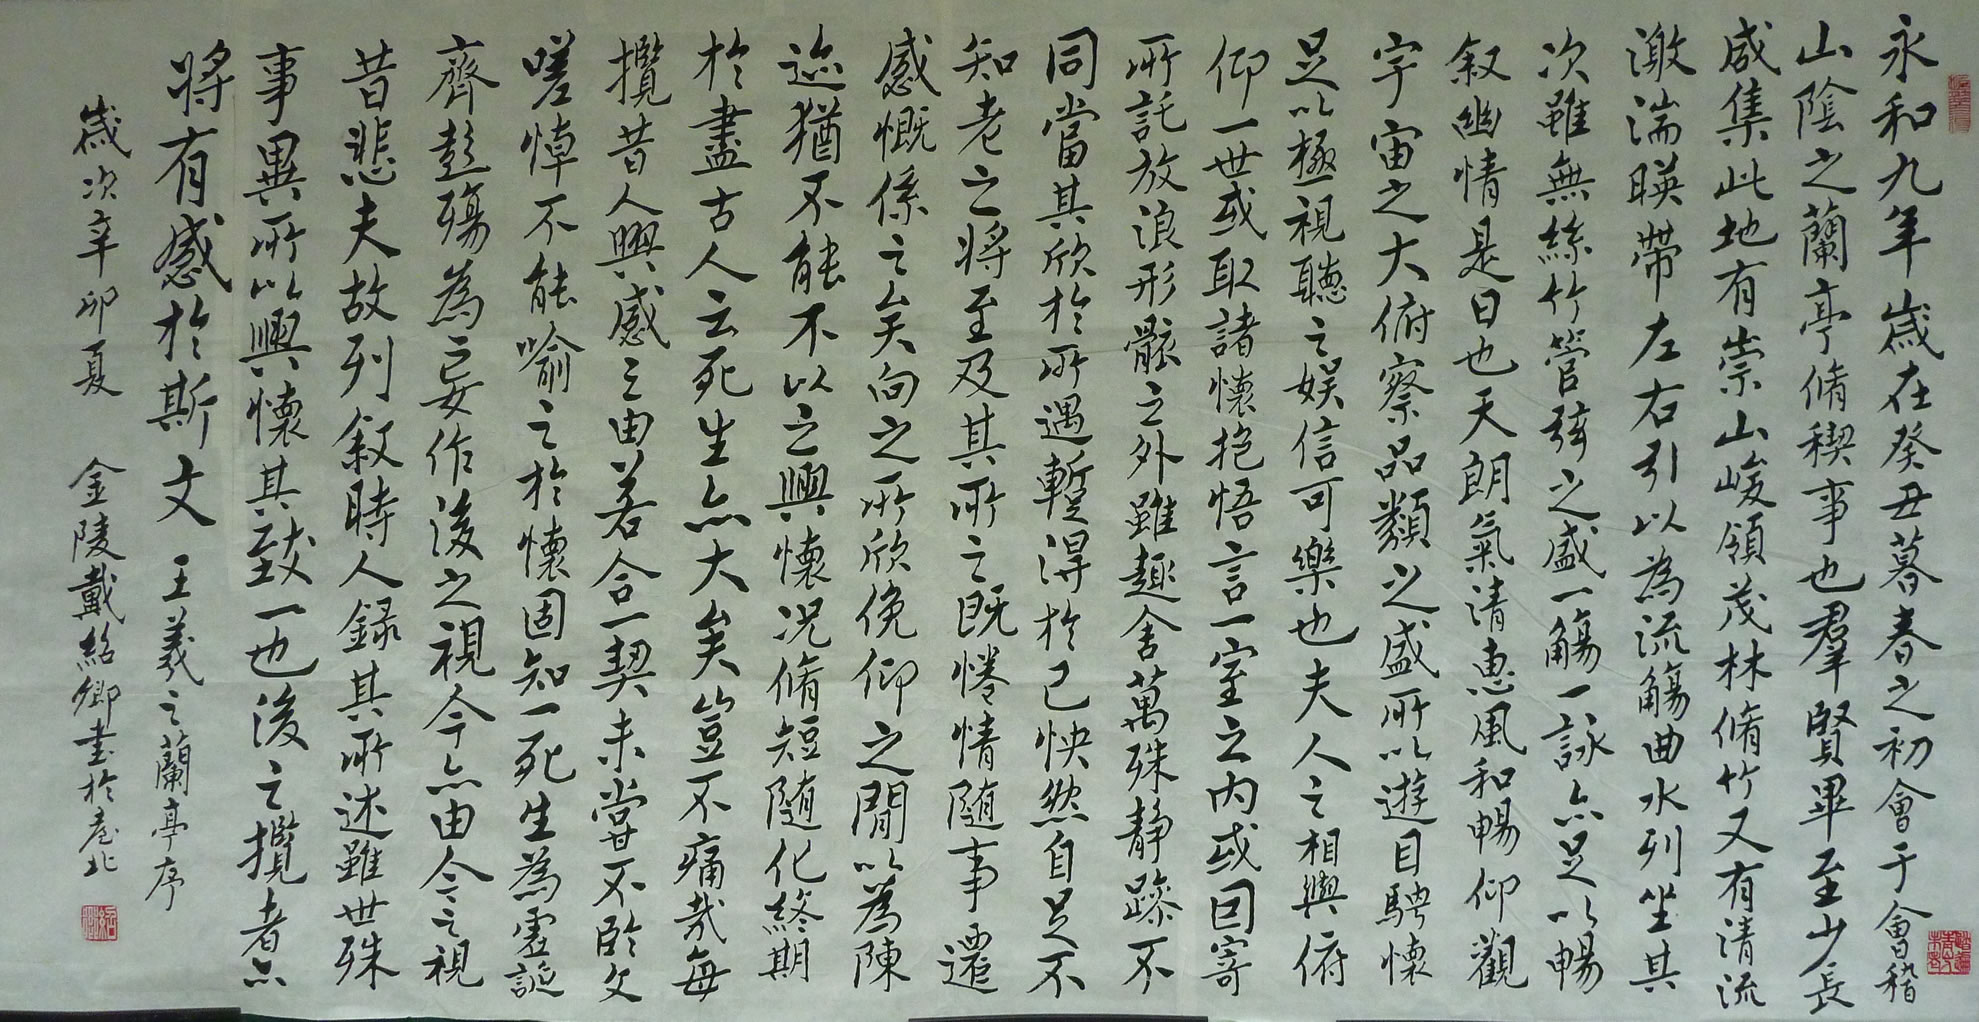 永和九年歲在癸丑暮春之初會于會稽
山陰之蘭亭脩稧事也羣賢畢至少長
咸集此地有崇山峻領茂林脩竹又有清流
激湍暎帶左右引以為流觴曲水列坐其
次雖無絲竹管弦之盛一觴一詠亦足以暢
叙幽情是日也天朗氣清惠風和暢仰觀
宇宙之大俯察品類之盛所以遊目騁懷
足以極視聽之娛信可樂也夫人之相與俯
仰一世或取諸懷抱悟言一室之內或因寄
所託放浪形骸之外雖趣舍萬殊静躁不
同當其欣於所遇蹔得於己怏然自足不
知老之將至及其所之既惓情随事遷
感慨係之矣向之所欣俛仰之間以為陳
迹猶不能不以之興懷况脩短随化終期
於盡古人云死生亦大矣豈不痛哉每
攬昔人興感之由若合一契未嘗不臨文
嗟悼不能喻之於懷固知一死生為虛誕
齊彭殤為妄作後之視今亦由今之視
昔悲夫故列叙時人録其所述雖世殊
事異所以興懷其致一也後之攬者亦
將有感於斯文 王羲之蘭亭序
歲次辛卯夏 金陵戴紹卿書於臺北